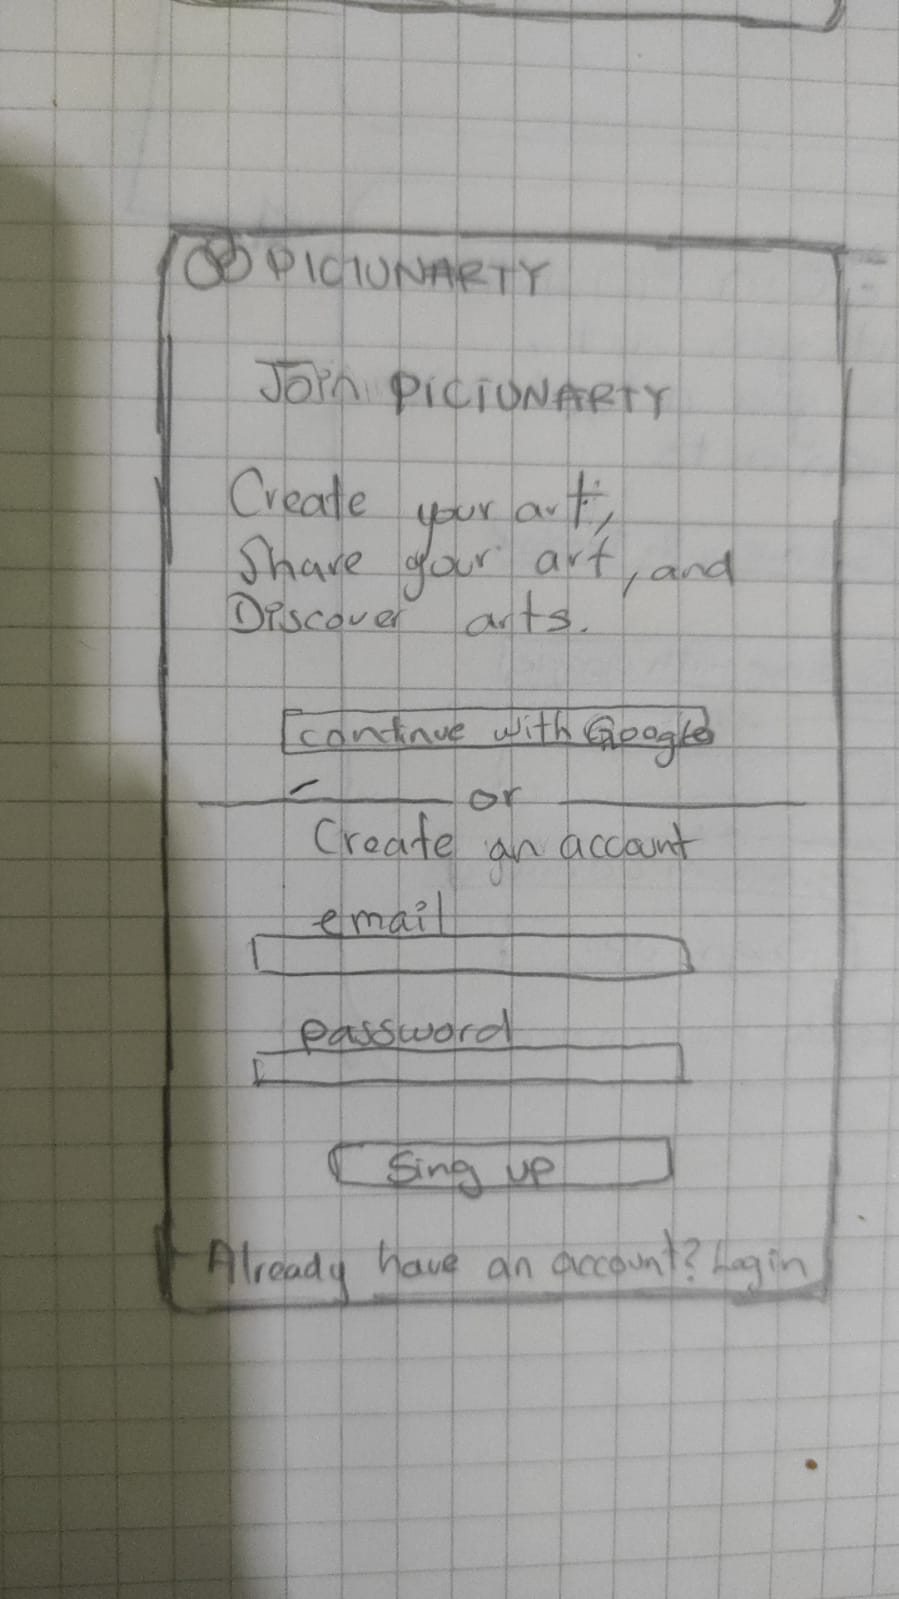 PICIUNARTY
Join PICIUNARTY
Create your art,
Share your art, and
Discover arts.
continue with Google
or
Create an account
email
password
Sing up
Already have an account? Login